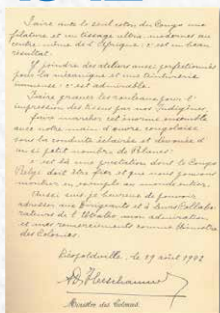 Faire avec le seul coton du Congo une
filature et un tissage ultra-modernes au
centre même de l'Afrique, c'est un beau
résultat.
Y joindre des ateliers aussi perfectionnés
pour la mécanique et une teinturerie
immense c'est admirable.
Faire graver les rouleaux pour l'
impression des tissus par nos Indigènes,
faire marcher cet énorme ensemble
avec notre main d'œuvre congolaise
sous la conduite éclairée et dévouée d'
un si petit nombre de Blancs
c'est là une prestation dont le Congo
Belge doit être fier et que nous pouvons
montrer en exemple au monde entier.
Aussi suis je heureux de pouvoir
adresser aux Dirigeants et à leurs Collabo-
rateurs de l'Utexléo mon admiration
et mes remerciements comme Ministre
des Colonies.
Léopoldville, le 29 août 1942
Ministre des Colonies